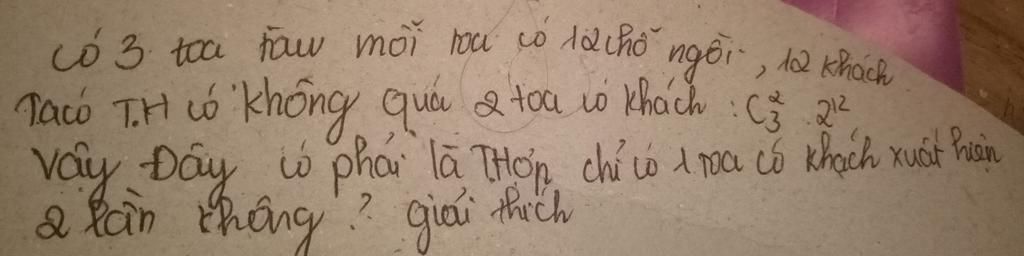 Có 3 toa tàu mỗi toa có 12 chỗ ngồi, 12 khách
Ta có T.H có không quá 2 toa có khách : C²₃ . 2¹²
Vậy Đây có phải là THợp chỉ có 1 toa có khách xuất hiện
2 lần không ? giải thích